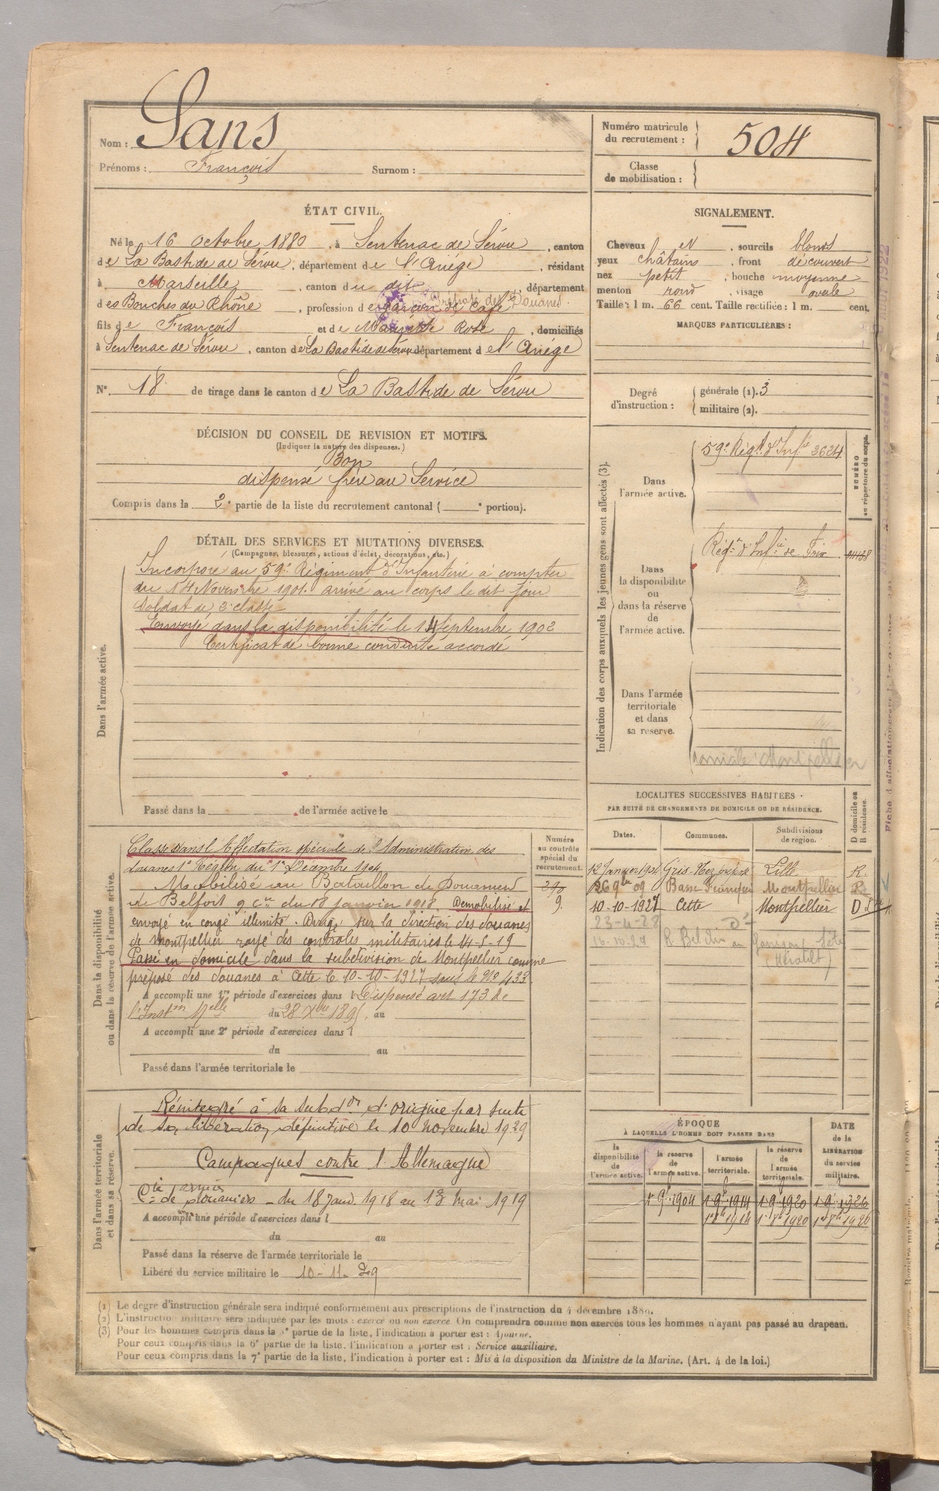 Nom : Sans
Prénoms : François Surnom :
Numéro matricule du recrutement : 504
Classe de mobilisation :
ÉTAT CIVIL.
Né le 16 Octobre 1880, à Sentenac de Sérou, canton
de La Bastide de Sérou, département de l'Ariége, résidant
à Marseille, canton du dit, département
des Bouches du Rhône, profession de garçon de café
fils de François et de Rose, domiciliés
à Sentenac de Sérou, canton de La Bastide de Sérou département de l'Ariége
N° 18 de tirage dans le canton de La Bastide de Sérou
SIGNALEMENT.
Cheveux et, sourcils blonds
yeux châtains, front découvert
nez petit, bouche moyenne
menton rond, visage ovale
Taille : 1 m. 66 cent. Taille rectifiée : 1 m. cent.
MARQUES PARTICULIÈRES :
Degré d'instruction : générale (1). 3
militaire (2).
DÉCISION DU CONSEIL DE REVISION ET MOTIFS.
(Indiquer la nature des dispenses.)
Bon
dispensé frère au Service
Compris dans la 2e partie de la liste du recrutement cantonal ( e portion).
DÉTAIL DES SERVICES ET MUTATIONS DIVERSES.
(Campagnes, blessures, actions d'éclat, décorations, etc.)
Dans l'armée active.
Incorporé au 59e Régiment d'Infanterie à compter
du 14 Novembre 1901 arrivé au corps le dit jour
Soldat de 2e classe
Envoyé dans la disponibilité le Septembre 1902
Certificat de bonne conduite accordé
Passé dans la de l'armée active le
Indication des corps auxquels les jeunes gens sont affectés (3).
NUMÉRO au répertoire du corps.
Dans l'armée active.
59e Régt d'Infie 3624
Dans la disponibilité ou dans la réserve de l'armée active.
Régt d'Infie de Foix
Dans l'armée territoriale et dans sa réserve.
Domicile Montpellier
LOCALITÉS SUCCESSIVES HABITÉES
PAR SUITE DE CHANGEMENTS DE DOMICILE OU DE RÉSIDENCE.
Dates. Communes. Subdivisions de région. D domicile ou R résidence.
12 Janvier 1904 Lille R
26 9bre 09 Montpellier R
10-10-1927 Cette Montpellier D
23-4-28
Dans la disponibilité ou dans la réserve de l'armée active.
Numéro au contrôle spécial du recrutement.
Classé dans l'Affectation spéciale de l'Administration des
douanes 1er Région du 1er Décembre 1904
Mobilisé au Bataillon de Douaniers
de Belfort 9 Cie du 18 janvier 1918. Démobilisé et
envoyé en congé illimité sur la direction des douanes
de Montpellier rayé des contrôles militaires le 14-5-19
Passé en domicile dans la subdivision de Montpellier comme
préposé des douanes à Cette le 10-10-1927 sous le No 433
A accompli une 1re période d'exercices dans l Dispensé art 173 de
l'Inston Melle du 28 Xbre 1895 au
A accompli une 2e période d'exercices dans l
du au
Passé dans l'armée territoriale le
Dans l'armée territoriale et dans sa réserve.
Réintégré à sa subdon d'origine par suite
de sa libération définitive le 10 novembre 1929
Campagnes contre l'Allemagne
Cie de Douaniers - du 18 janv 1918 au 13 mai 1919
A accompli une période d'exercices dans l
du au
Passé dans la réserve de l'armée territoriale le
Libéré du service militaire le 10-11-29
ÉPOQUE
À LAQUELLE L'HOMME DOIT PASSER DANS
la disponibilité de l'armée active. la réserve de l'armée active. l'armée territoriale. la réserve de l'armée territoriale.
DATE de la LIBÉRATION du service militaire.
1r 9b 1904 1-9b-1914 1-9b 1920 1-9-1926
1r 8b 1914 1r 8b 1920 1r 8b 1926
(1) Le degré d'instruction générale sera indiqué conformément aux prescriptions de l'instruction du 4 décembre 1889.
(2) L'instruction militaire sera indiquée par les mots : exercé ou non exercé. On comprendra comme non exercés tous les hommes n'ayant pas passé au drapeau.
(3) Pour les hommes compris dans la 5e partie de la liste, l'indication à porter est : Ajourné.
Pour ceux compris dans la 6e partie de la liste, l'indication à porter est : Service auxiliaire.
Pour ceux compris dans la 7e partie de la liste, l'indication à porter est : Mis à la disposition du Ministre de la Marine. (Art. 4 de la loi.)